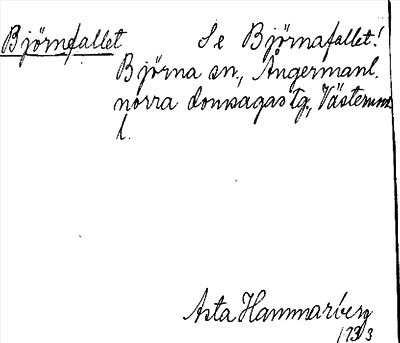 Björnfallet Se Björnafallet!
Björna sn, Ångermanl.
norra domsagas tg, Västernorrl
l.
Asta Hammarberg
1933